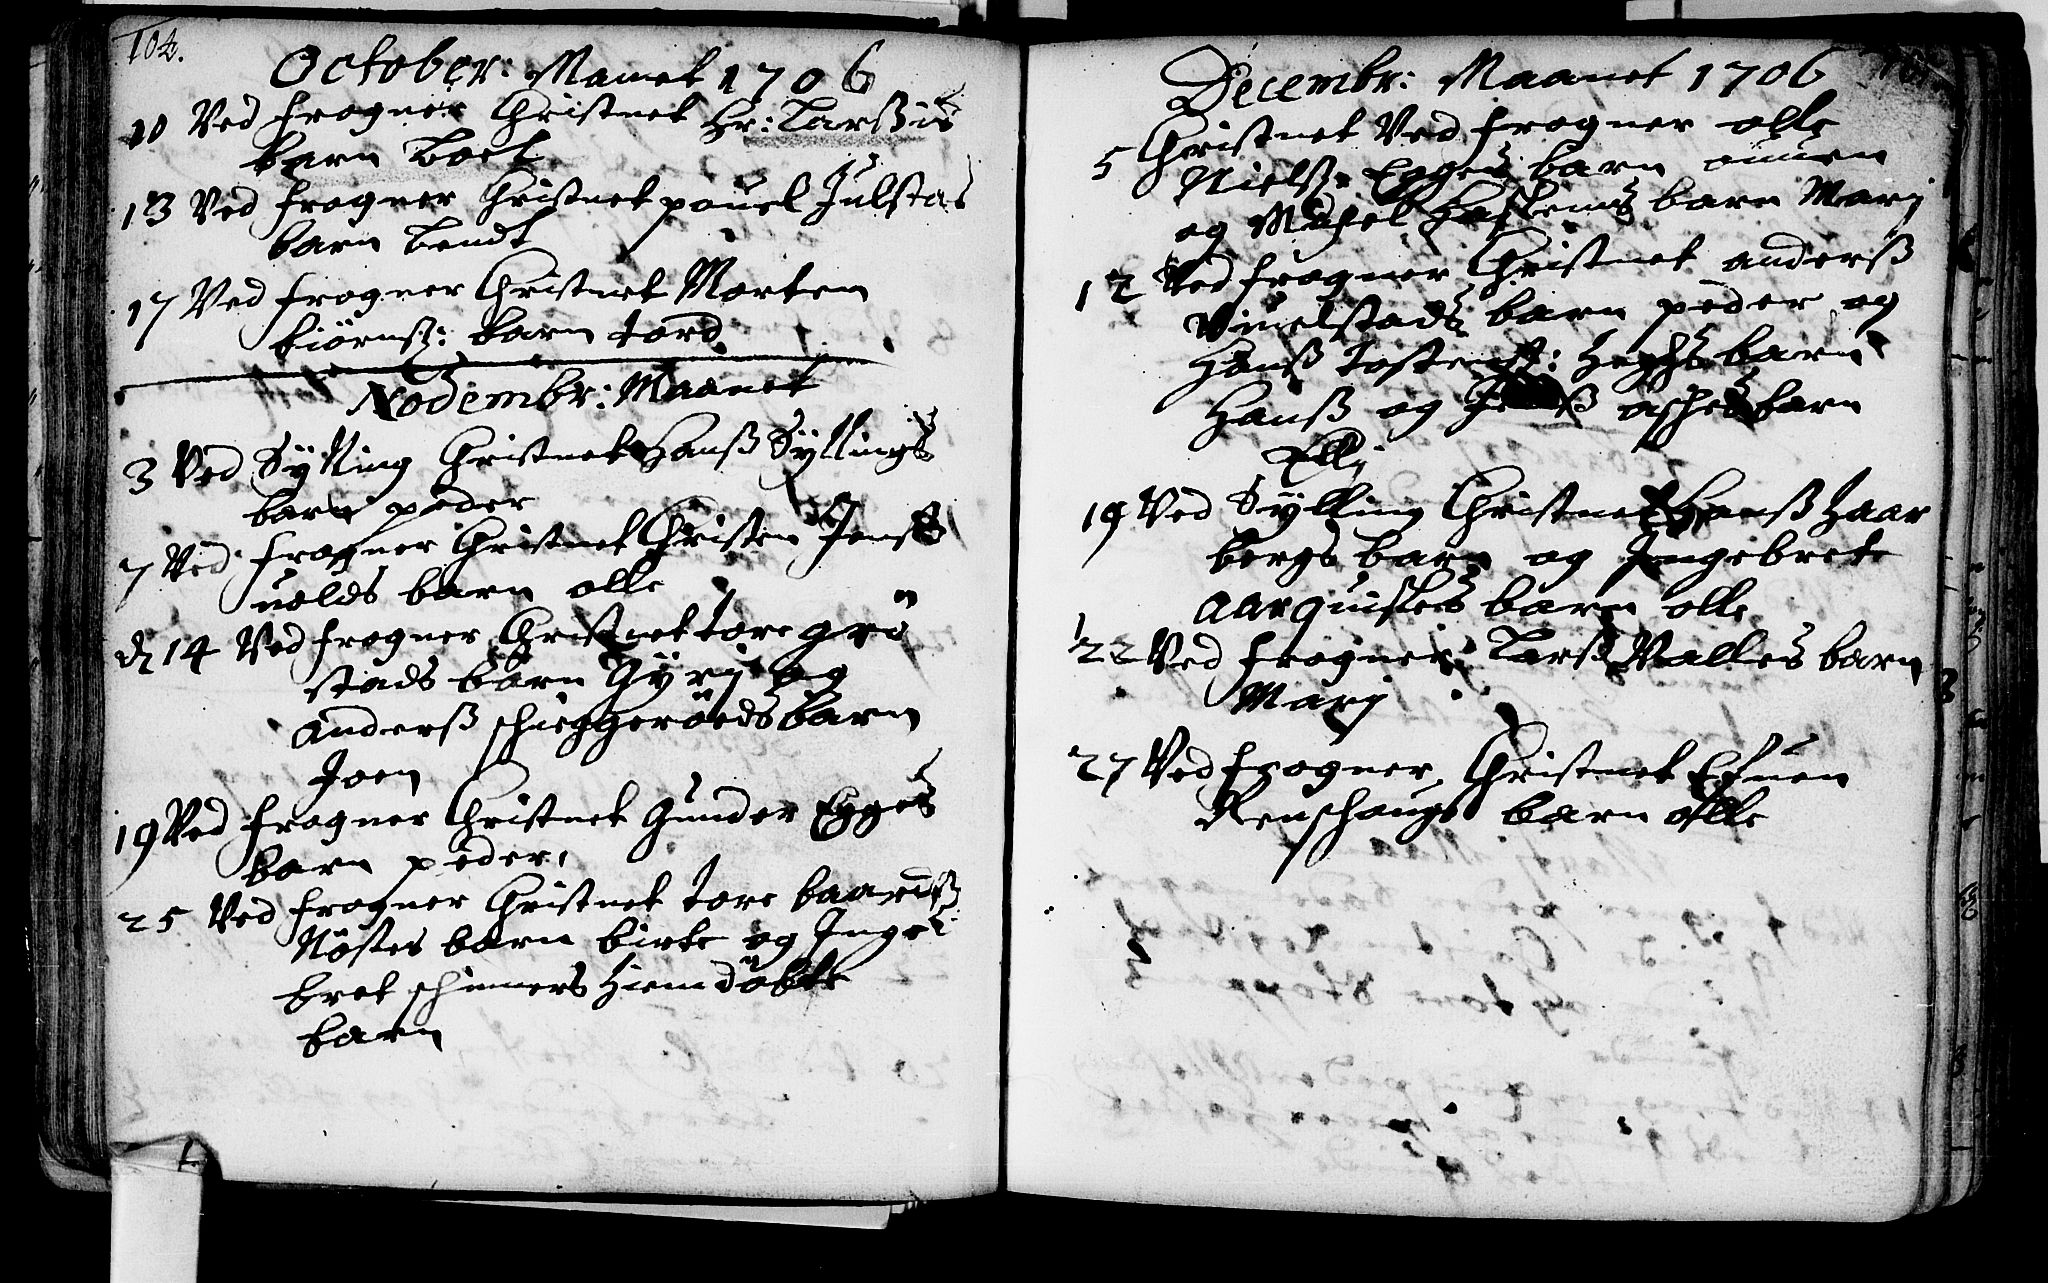 104.
October: Manet 1706
10 Ved frogner Christnet Hr: Larssis
barn Boel
13 Ved frogner Christnet pouel Julstas
barn bendt
17 Ved frogner Christnet Morten
biörnsß: barn tord
Novembr: Maanet
3 Ved Sylling Christnet Hanß Syllings
barn peder
7 Ved frogner Christnet Christen Jens
volds barn olle
d 14 Ved frogner Christnet tore grö
stads barn Gyri og
anderß schieggeröeds barn
Joen
19 Ved frogner Christnet Gunder Egges
barn peder
25 Ved frogner Christnet tore baardß
Nöstes barn birte og Inge
bret schinners Hiemdöbte
barn
Decembr: Maanet 1706
5 Christnet Ved frogner olle
Nielß: Egges barn
og barn Mari
12 Ved frogner Christnet anderß
Vivelstads barn peder og
Hanß Tostenß: barn
Hanß og aschers barn
Elli
19 Ved Sylling Christnet Hanß Haar
bergs barn og Ingebret
aarquisles barn olle
22 Ved frogner Larß Valles barn
Mari
27 Ved frogner Christnet Efuen
Renschougs barn olle